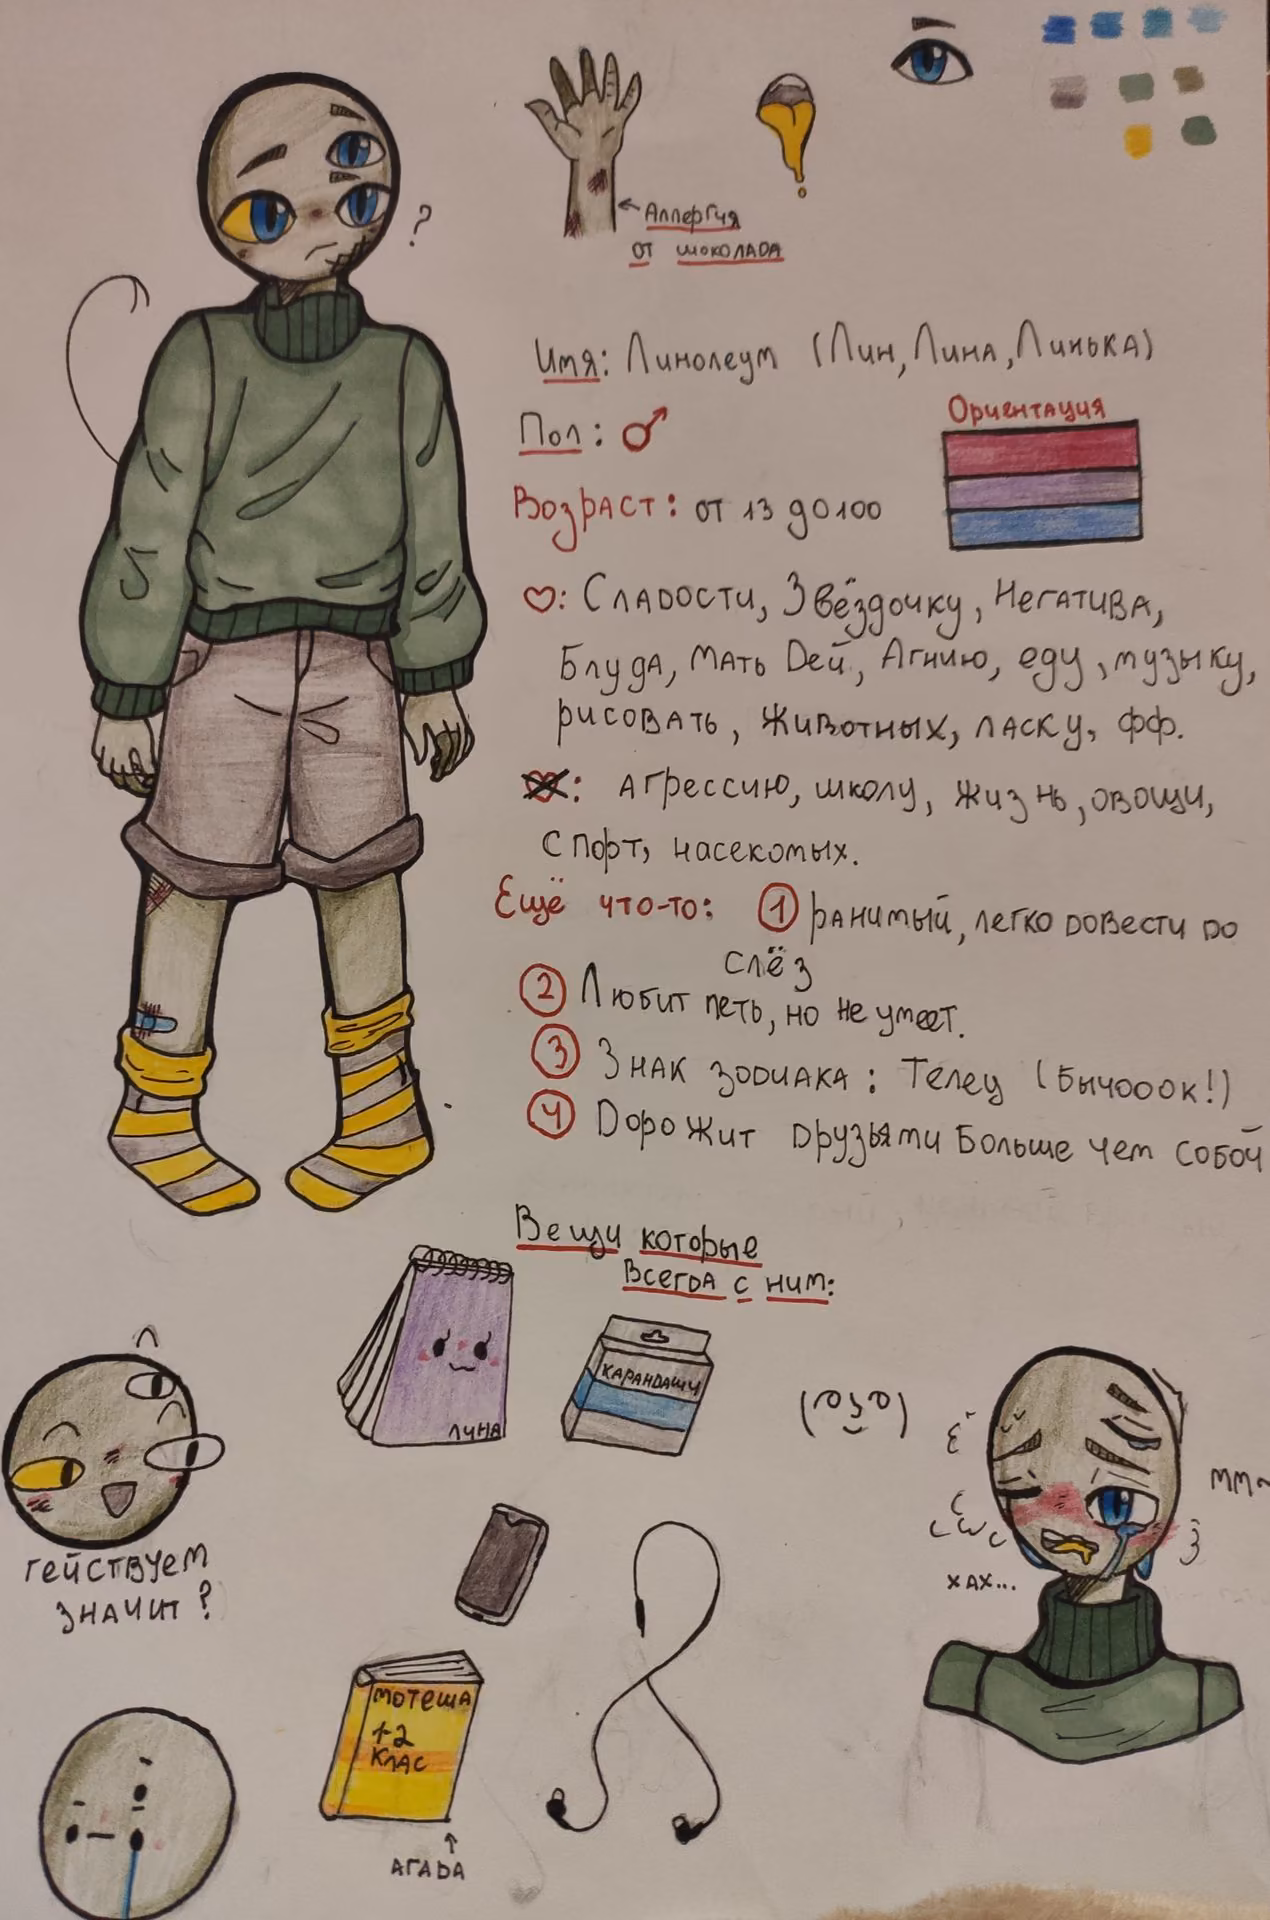 ?
Аллергия
от шоколада
Имя: Линолеум (Лин, Лина, Линька)
Пол: ♂
Ориентация
Возраст: от 13 до 100
♡: Сладости, Звёздочку, Негатива,
Блуда, Мать Dей, Агнию, еду, музыку,
рисовать, животных, ласку, фф.
агрессию, школу, жизнь, овощи,
спорт, насекомых.
Ещё что-то: ① ранимый, легко довести до
слёз
② Любит петь, но не умеет.
③ Знак зодиака: Телец (Бычооок!)
④ Dорожит друзьями больше чем собой
Вещи которые
всегда с ним:
ЛУНА
КАРАНДАШИ
мм~
хах...
гействуем
значит?
мотеша
1-2
клас
агаDа